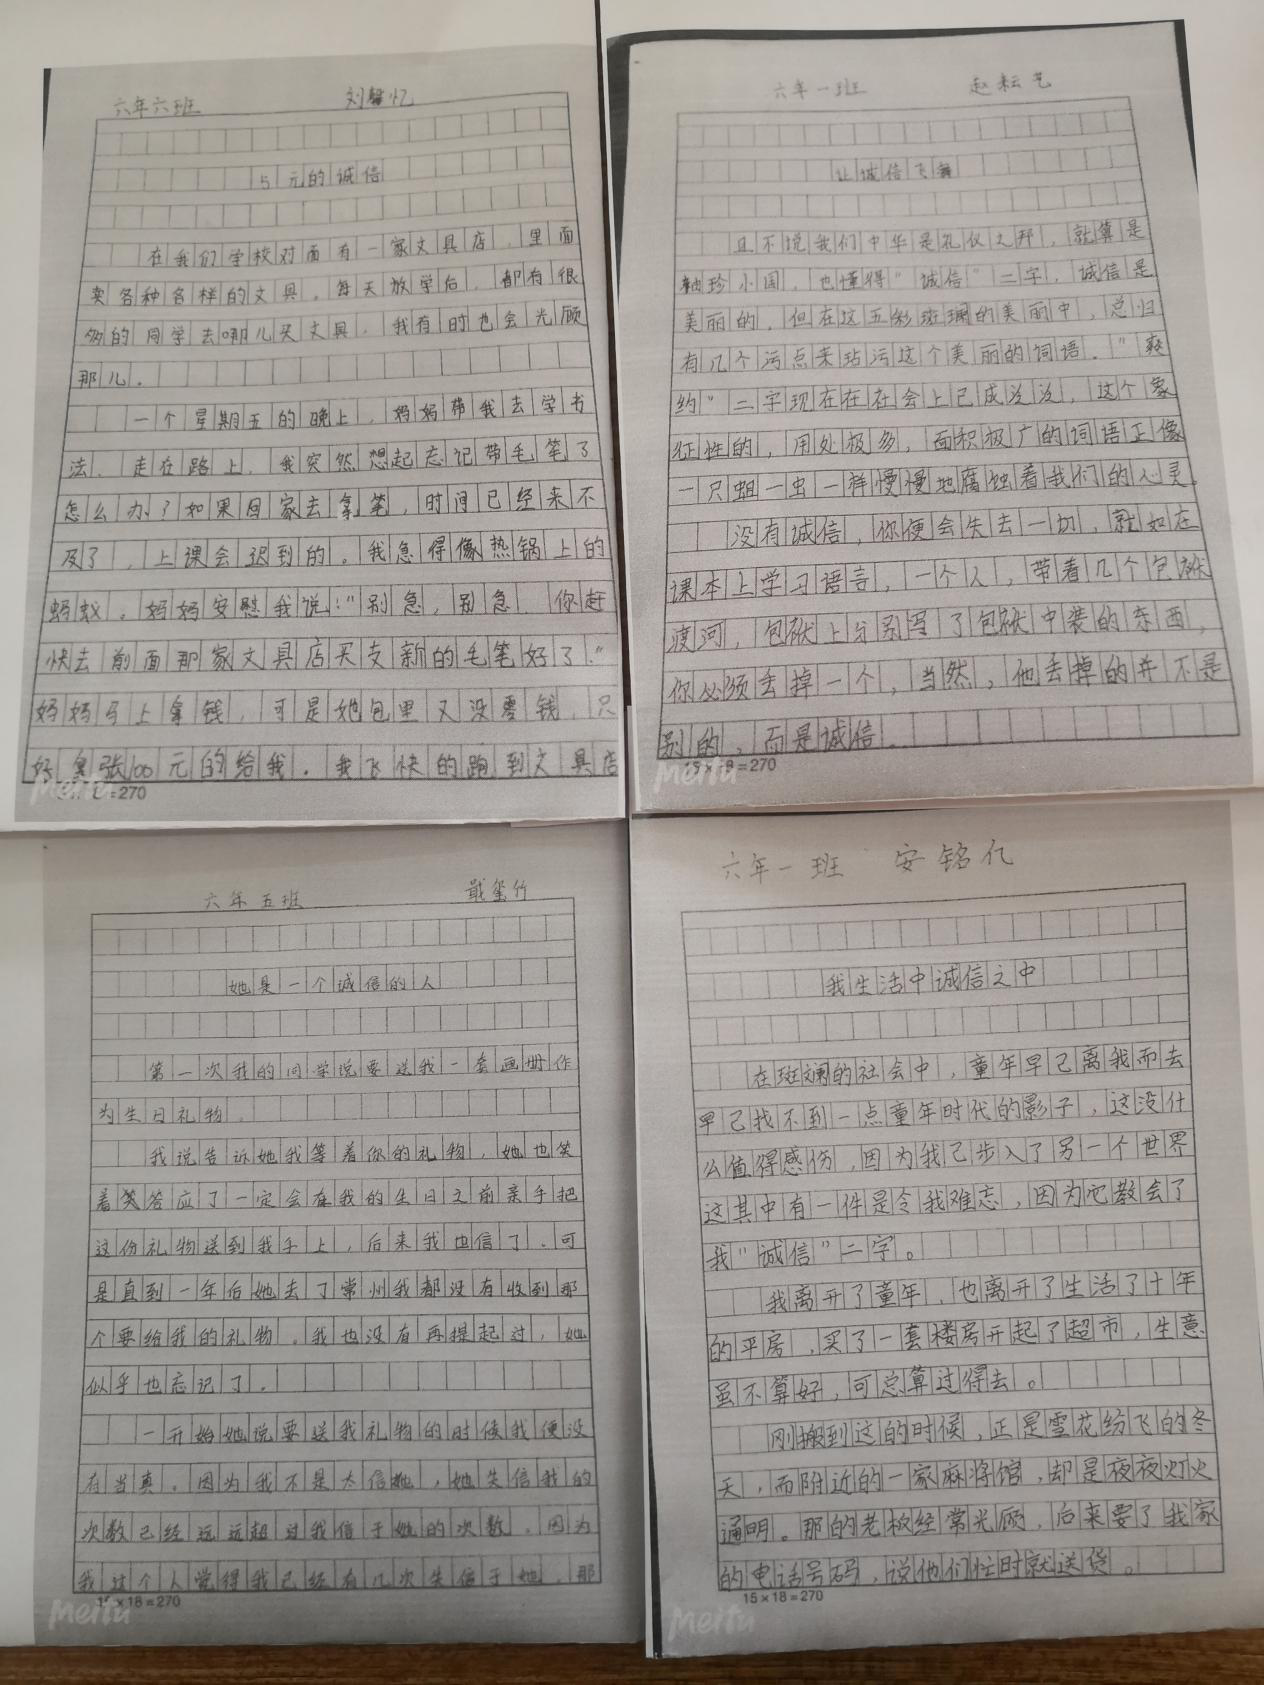 六年六班
刘馨忆
5元的诚信
在我们学校对面有一家文具店，里面
卖各种各样的文具。每天放学后，都有很
多的同学去哪儿买文具，我有时也会光顾
那儿。
一个星期五的晚上，妈妈带我去学书
法，走在路上，我突然想起忘记带毛笔了
怎么办？如果回家去拿笔，时间已经来不
及了，上课会迟到的。我急得像热锅上的
蚂蚁。妈妈安慰我说："别急，别急，你赶
快去前面那家文具店买支新的毛笔好了。"
妈妈马上拿钱，可是她包里又没零钱，只
好拿张100元的给我。我飞快的跑到文具店
15×18=270
Meitu
六年一班
赵耘艺
让诚信飞舞
且不说我们中华是礼仪之邦，就算是
袖珍小国，也懂得"诚信"二字，诚信是
美丽的，但在这五彩斑斓的美丽中，总归
有几个污点来玷污这个美丽的词语。"爽
约"二字现在在社会上已成泛泛，这个象
征性的，用处极多，面积极广的词语正像
一只蛆虫一样慢慢地腐蚀着我们的心灵。
没有诚信，你便会失去一切，就如在
课本上学习语言，一个人，带着几个包袱
渡河，包袱上分别写了包袱中装的东西，
你必须丢掉一个，当然，他丢掉的并不是
别的，而是诚信。
15×18=270
Meitu
六年五班
戢玺竹
她是一个诚信的人
第一次我的同学说要送我一套画册作
为生日礼物。
我说告诉她我等着你的礼物，她也笑
着笑答应了一定会在我的生日之前亲手把
这份礼物送到我手上，后来我也信了。可
是直到一年后她去了常州我都没有收到那
个要给我的礼物。我也没有再提起过，她
似乎也忘记了。
一开始她说要送我礼物的时候我便没
有当真。因为我不是太信她，她失信我的
次数已经远远超过我信于她的次数。因为
我这个人觉得我已经有几次失信于她，那
15×18=270
Meitu
六年一班
安铭亿
我生活中诚信之中
在斑斓的社会中，童年早已离我而去
早已找不到一点童年时代的影子，这没什
么值得感伤，因为我已步入了另一个世界
这其中有一件是令我难忘，因为它教会了
我"诚信"二字。
我离开了童年，也离开了生活了十年
的平房，买了一套楼房开起了超市，生意
虽不算好，可总算过得去。
刚搬到这的时候，正是雪花纷飞的冬
天，而附近的一家麻将馆，却是夜夜灯火
通明。那的老板经常光顾，后来要了我家
的电话号码，说他们忙时就送货。
15×18=270
Meitu